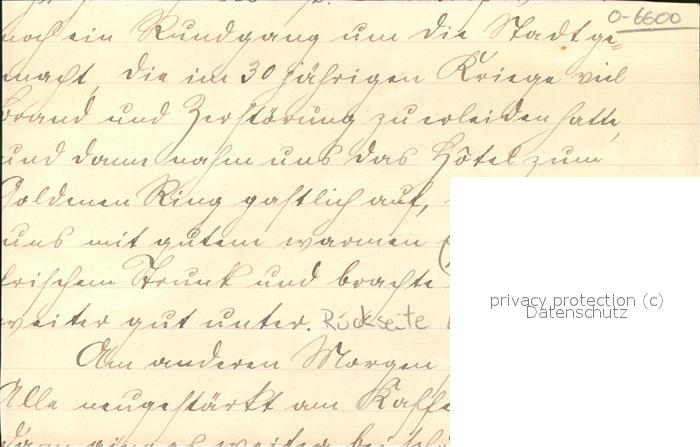 O-6600
noch ein Rundgang um die Stadt ge=
macht, die im 30 jährigen Kriege viel
Brand und Zerstörung zu erleiden hatte,
und dann nahm uns das Hôtel zum
Goldenen Ring gastlich auf,
uns mit gutem warmen
frischem Trunk und brachte
weiter gut unter. Rückseite
privacy protection (c)
Datenschutz
Am anderen Morgen
Alle neugestärkt am Kaffe
dann ging es weiter bei